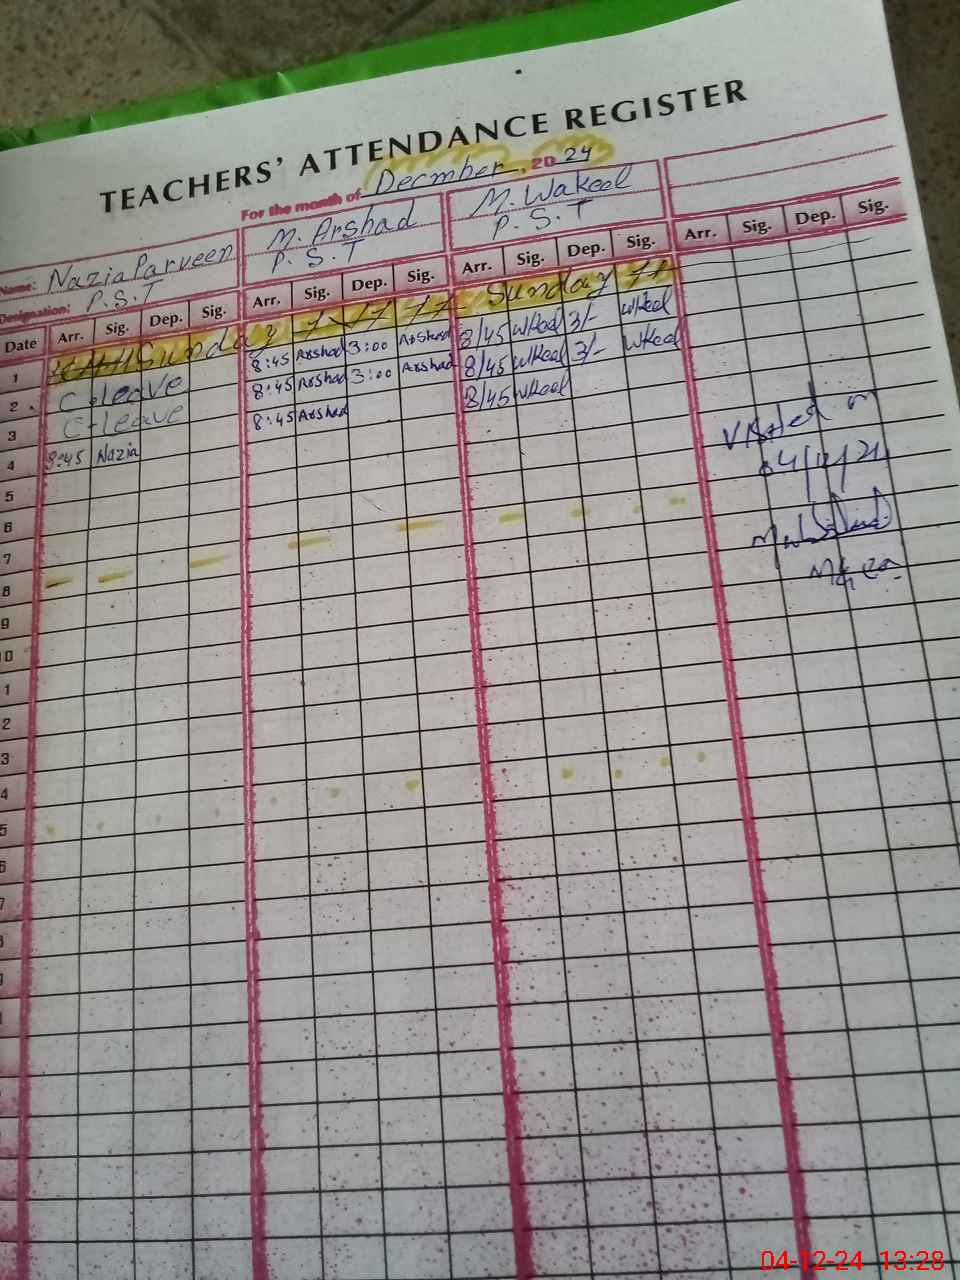 TEACHERS' ATTENDANCE REGISTER
For the month of Decmber, 2024
Name: Nazia Parveen M. Arshad M. Wakeel
Designation: P.S.T P.S.T P.S.T
Date Arr. Sig. Dep. Sig. Arr. Sig. Dep. Sig. Arr. Sig. Dep. Sig. Arr. Sig. Dep. Sig.
1 Sunday Sunday
2 C-leave 8:45 Arshad 3:00 Arshad 8/45 WKeel 3/- WKeel
3 C-leave 8:45 Arshad 3:00 Arshad 8/45 WKeel 3/- WKeel
4 8:45 Nazia 8:45 Arshad 8/45 WKeel
Visited on
04/12/24
5
6
7
8
9
10
1
2
3
4
5
6
7
8
9
04-12-24 13:28